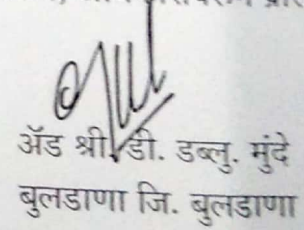 ॲड श्री. डी. डब्लु. मुंदे
बुलडाणा जि. बुलडाणा